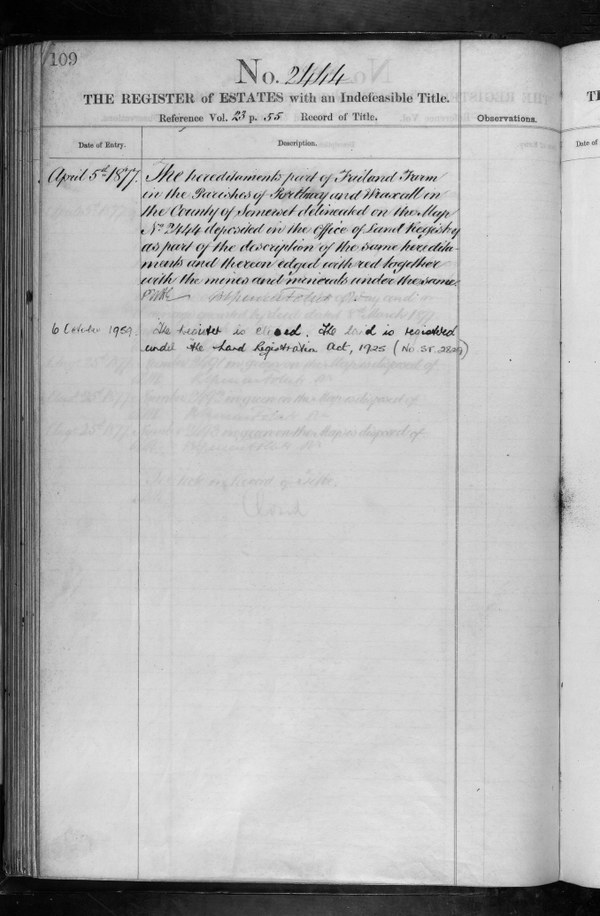 109
No. 2444
THE REGISTER of ESTATES with an Indefeasible Title.
Reference Vol. 23 p. 55 Record of Title.
Observations.
Date of Entry.
Description.
April 5th 1877.
The hereditaments part of Failand Farm
in the Parishes of Portbury and Wraxall in
the County of Somerset delineated on the Map
No 2444 deposited in the Office of Land Registry
as part of the description of the same heredita-
ments and thereon edged with red together
with the mines and minerals under the same
6 October 1959.
The register is closed. The land is registered
under the Land Registration Act, 1925 (No. ST. 2829)
TI
Date of